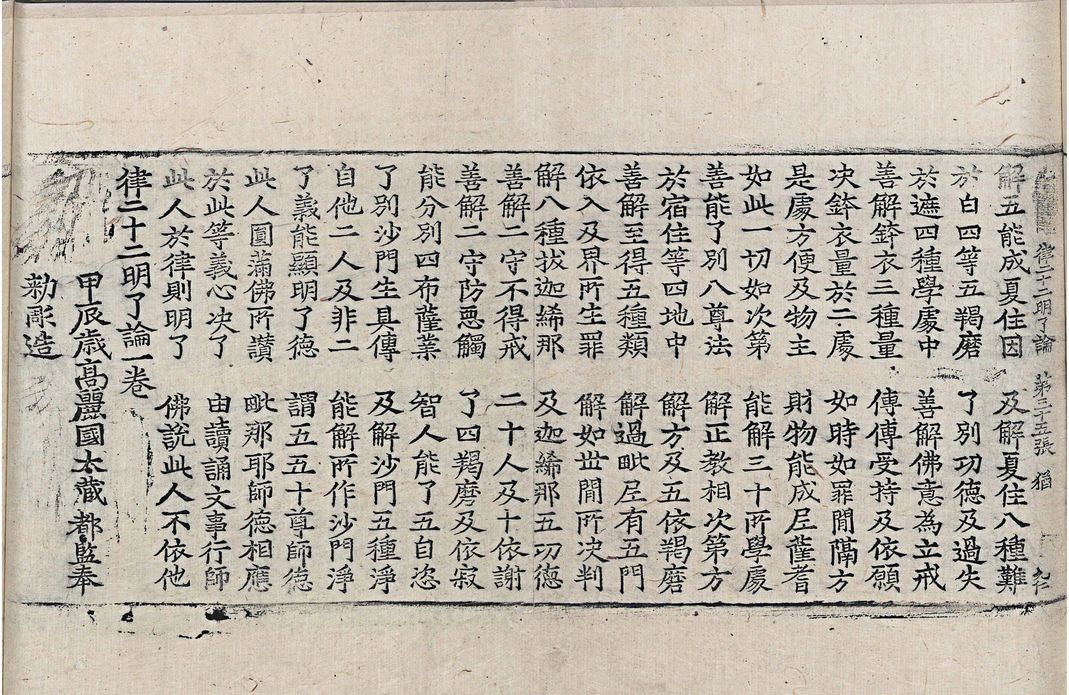 律二十二明了論 第二十五張 猶
解五能成夏住因 及解夏住八種難
於白四等五羯磨 了別功德及過失
於遮四種學處中 善解佛意為立戒
善解鉢衣三種量 傳傳受持及依願
决鉢衣量於二處 如時如罪間隔方
是處方便及物主 財物能成尼薩耆
如此一切如次第 能解三十所學處
善能了別八尊法 解正教相次第方
於宿住等四地中 解方及五依羯磨
善解至得五種類 解過毗尼有五門
依入及界所生罪 解如世間所决判
解八種拔迦絺那 及迦絺那五功德
善解二守不得戒 二十人及十依謝
善解二守防惡觸 了四羯磨及依寂
能分別四布薩業 智人能了五自恣
了別沙門生具傳 及解沙門五種淨
自他二人及非二 能解所作沙門淨
了義能顯明了德 謂五五十尊師德
此人圓滿佛所讚 毗那耶師德相應
於此等義心决了 由讀誦文事行師
此人於律則明了 佛說此人不依他
律二十二明了論一卷
甲辰歲高麗國大藏都監奉
勅彫造